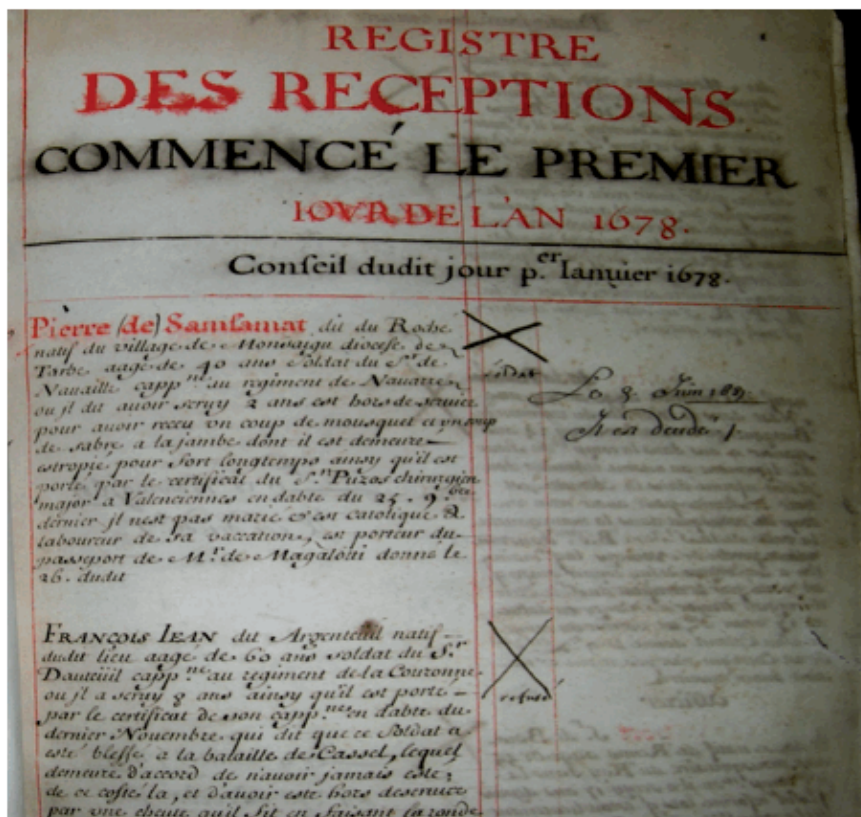 REGISTRE
DES RECEPTIONS
COMMENCÉ LE PREMIER
IOVR DE L'AN 1678.
Conseil dudit jour p.er Ianuier 1678.
Pierre (de) Samsamat dit du Roche
natif du village de Monsaigu diocese de
Tarbe aagé de 40 ans soldat du Sr. de
Nauaille capp.ne au regiment de Nauarre
ou jl dit auoir seruy 2 ans est hors de seruice
pour auoir receu vn coup de mousquet et vn coup
de sabre a la jambe dont il est demeuré
estropié pour fort longtemps ainsy qu'il est
porté par le certificat du Sr. Puzos chirurgien
major a Valenciennes en datte du 25. 9.bre
dernier jl nest pas marié et est catolique &
laboureur de sa vaccation, est porteur du
passeport de Mr. de Magalotti donné le
26. dudit
soldat
Le 8 Juin 1681
Il est decedé
FRANÇOIS IEAN dit Argenteuil natif
dudit lieu aagé de 60 ans soldat du Sr.
Dauteüil capp.ne au regiment de la Couronne
ou jl a seruy 8 ans ainsy qu'il est porté
par le certificat de son capp.ne en datte du
dernier Nouembre qui dit que ce soldat a
esté blessé a la bataille de Cassel, lequel
demeure d'accord de n'auoir jamais esté
de ce costé la, et d'auoir esté hors deseruice
par vne cheute quil fit en faisant la ronde
refusé